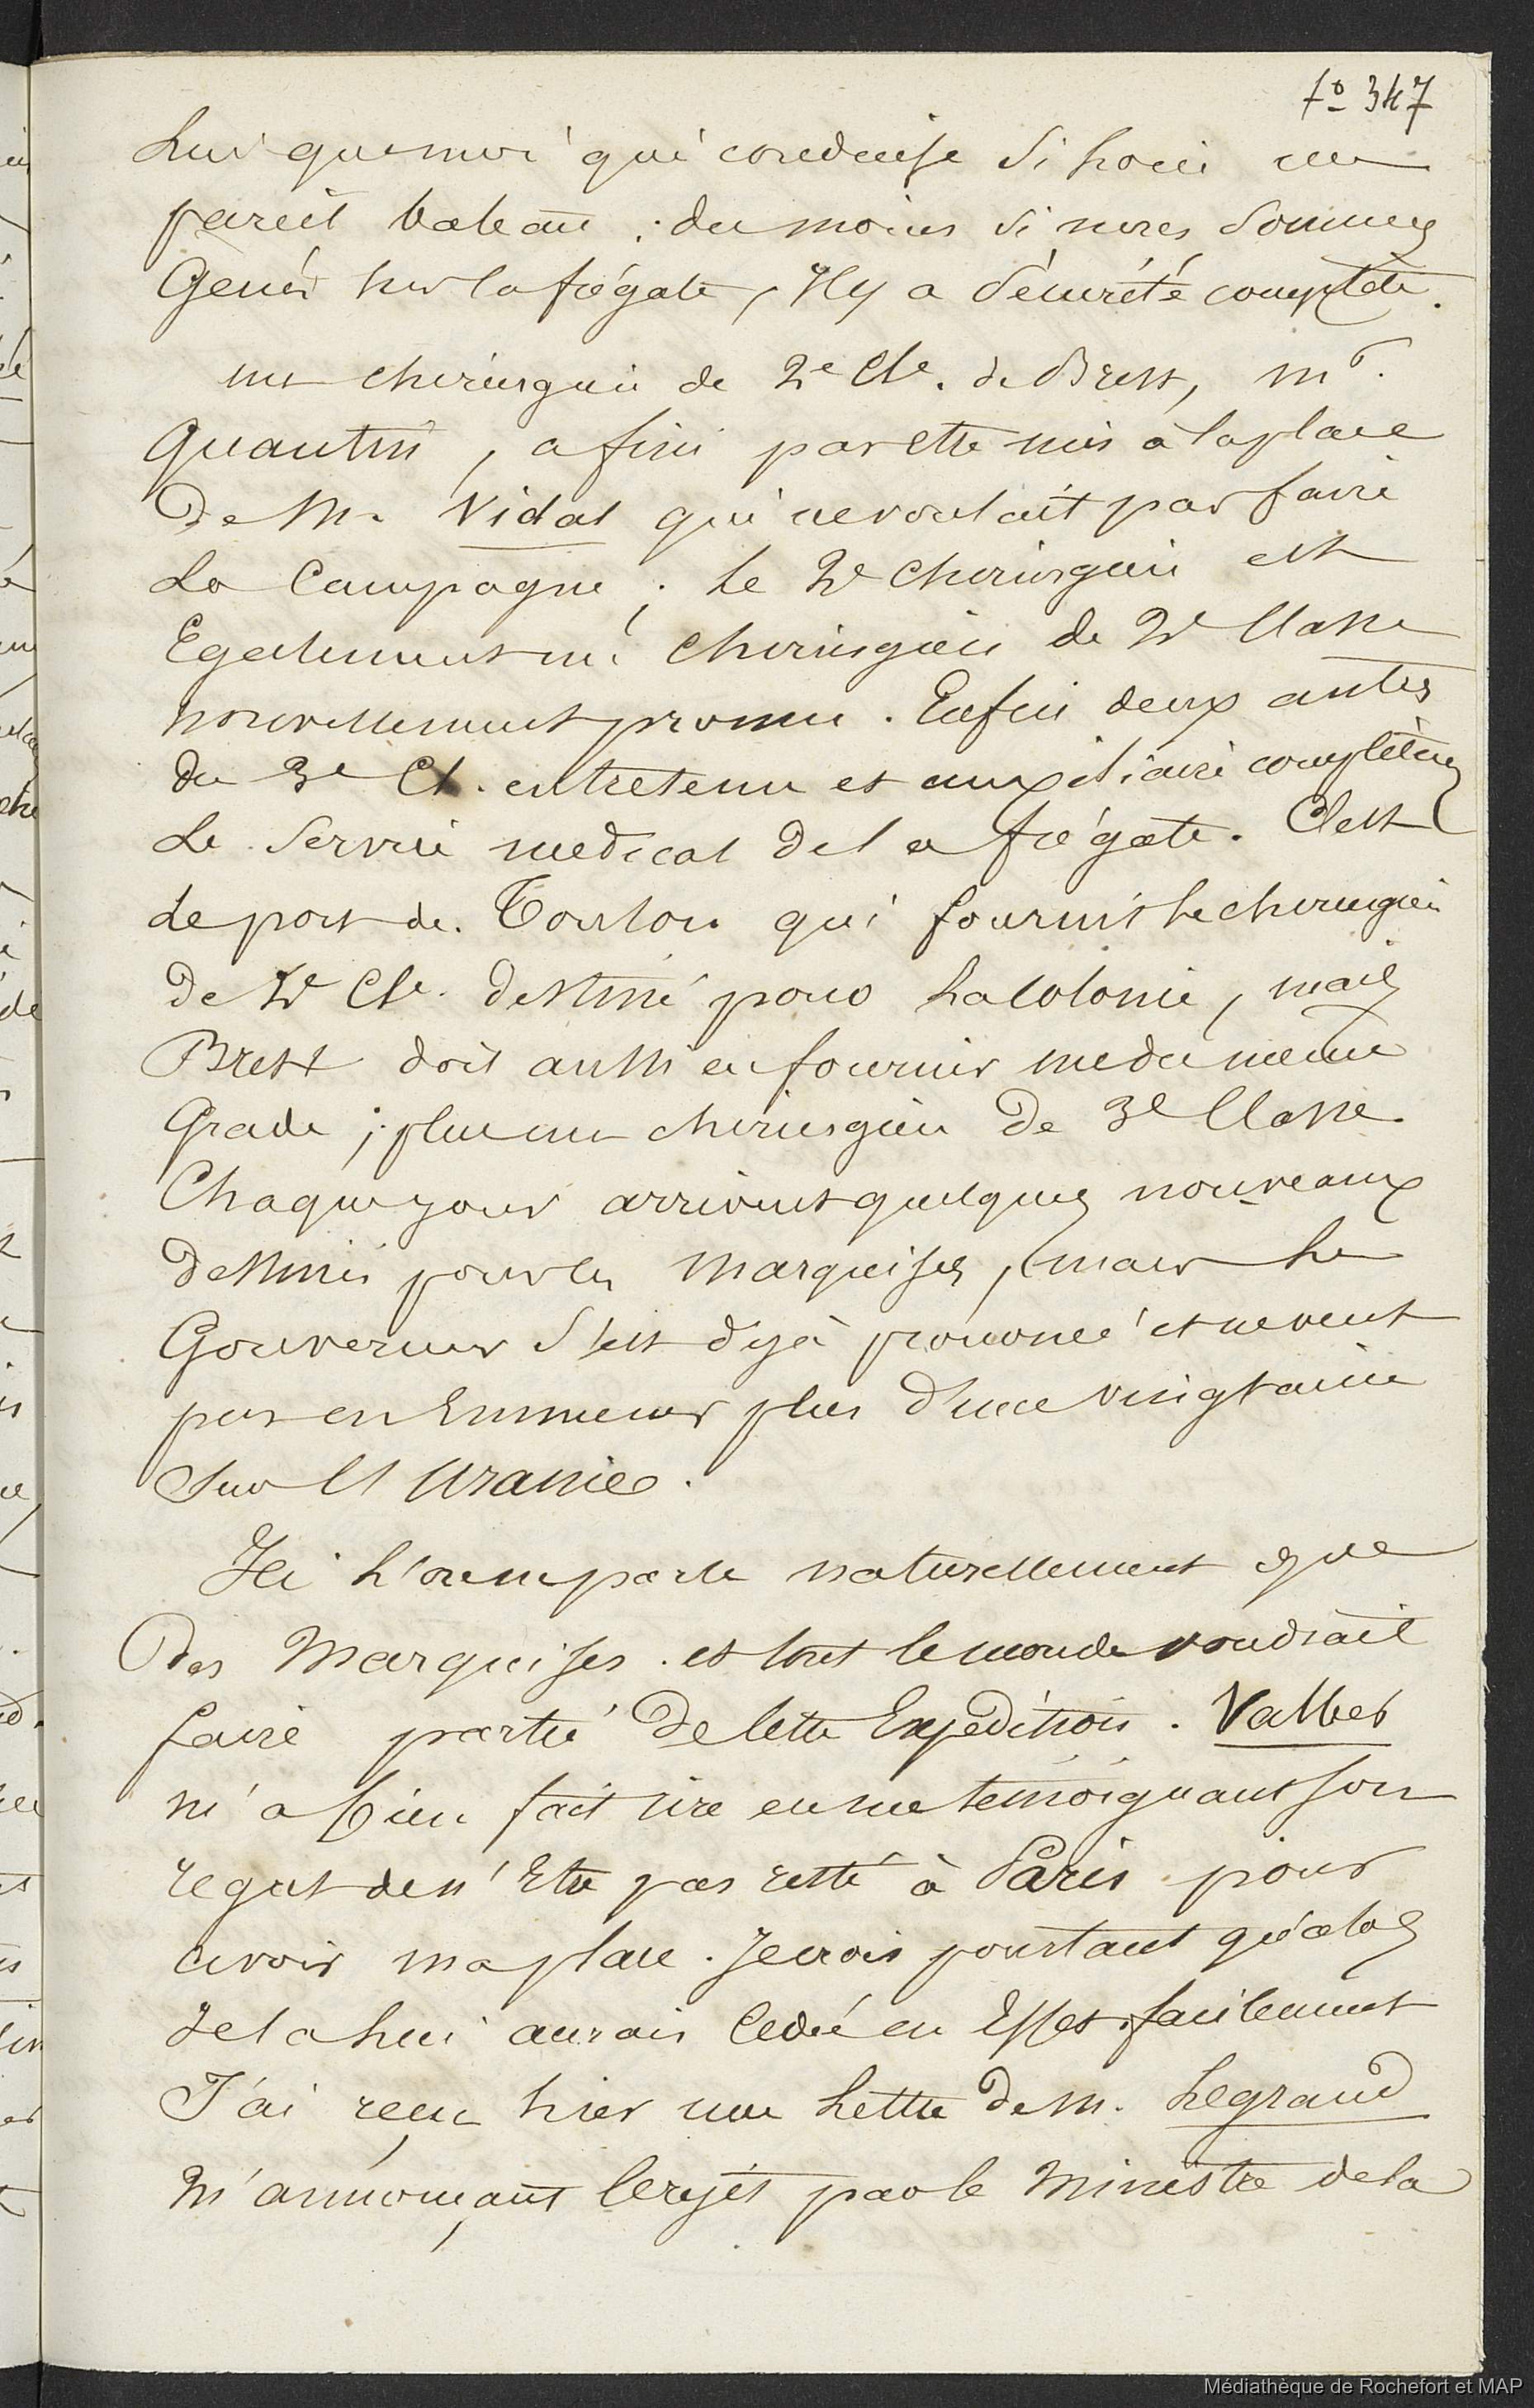 fo 347
Lui que moi qui conduise si loin un
pareil bateau ; du moins si nous sommes
Gênés sur la frégate, Il y a sécurité complète.
un chirurgien de 2e Cle. de Brest, mr.
Quantin, a fini par etre mis à la place
De M. Vidal qui ne voulait pas faire
La Campagne ; le 2e chirurgien est
Egalement un chirurgien de 2e Classe
nouvellement promu. Enfin deux autres
du 3e Cl. entretenu et auxiliaire complètent
Le Service medical de la frégate. C'est
Le port de Toulon qui fournit le chirurgien
De 2e Cle. destiné pour La Colonie, mais
Brest doit aussi en fournir un du même
Grade ; plus un chirurgien de 3e Classe
Chaque jour arrivent quelques nouveaux
Destinés pour les Marquises, mais le
Gouverneur s'est déjà prononcé et ne veut
pas en Emmener plus d'une vingtaine
Sur L'Uranie.
Ici l'on ne parle naturellement que
Des Marquises et tout le monde voudrait
faire partie de cette Expédition. Vallet
m'a bien fait rire en me témoignant son
regret de n'Etre pas resté à Paris pour
avoir ma place. Je crois pourtant qu'alors
Je la lui aurais Cédée en Effet facilement
J'ai reçu hier une Lettre de M. Legrand
M'annonçant le rejet par le Ministre de la
Médiathèque de Rochefort et MAP